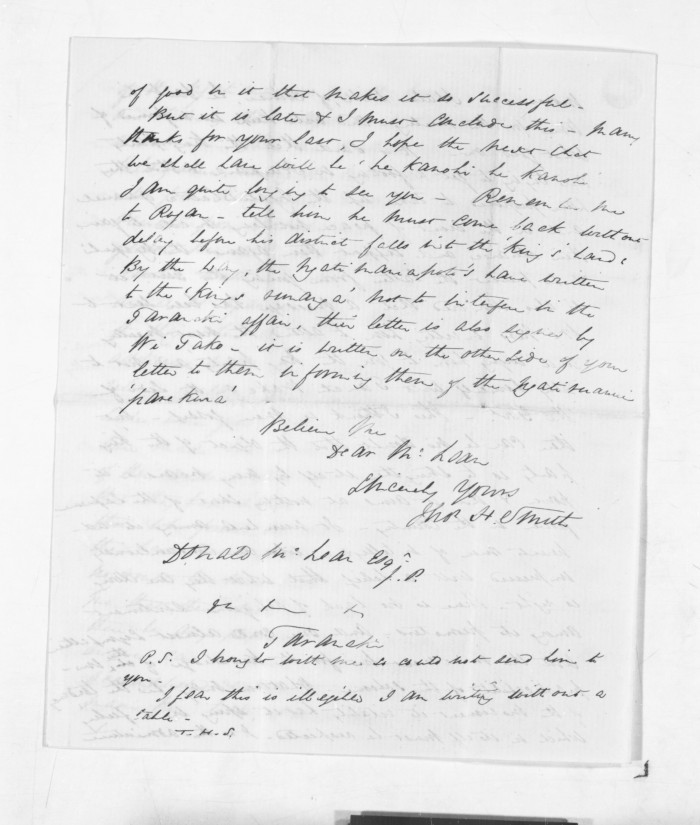 of good in it that makes it so successful -
But it is late & I must conclude this - Many
thanks for your last, I hope the next chat
we shall have will be 'he kanohi he kanohi
I am quite longing to see you - Remember me
to Rogan - tell him he must come back without
delay before his district falls into the 'King's' hands
By the way, the Ngatimaniapoto's have written
to the 'King's runanga' not to interfere in the
Taranaki affair, their letter is also signed by
Wi Tako - it is written on the other side of your
letter to them informing them of the
'parekura'
Believe me
Dear McLean
Sincerely Yours
Thos H. Smith
Donald McLean Esqr
J.P.
Taranaki
P.S. I brought with me so could not send him to
you -
I fear this is illegible I am writing without a
table -
T.H.S.